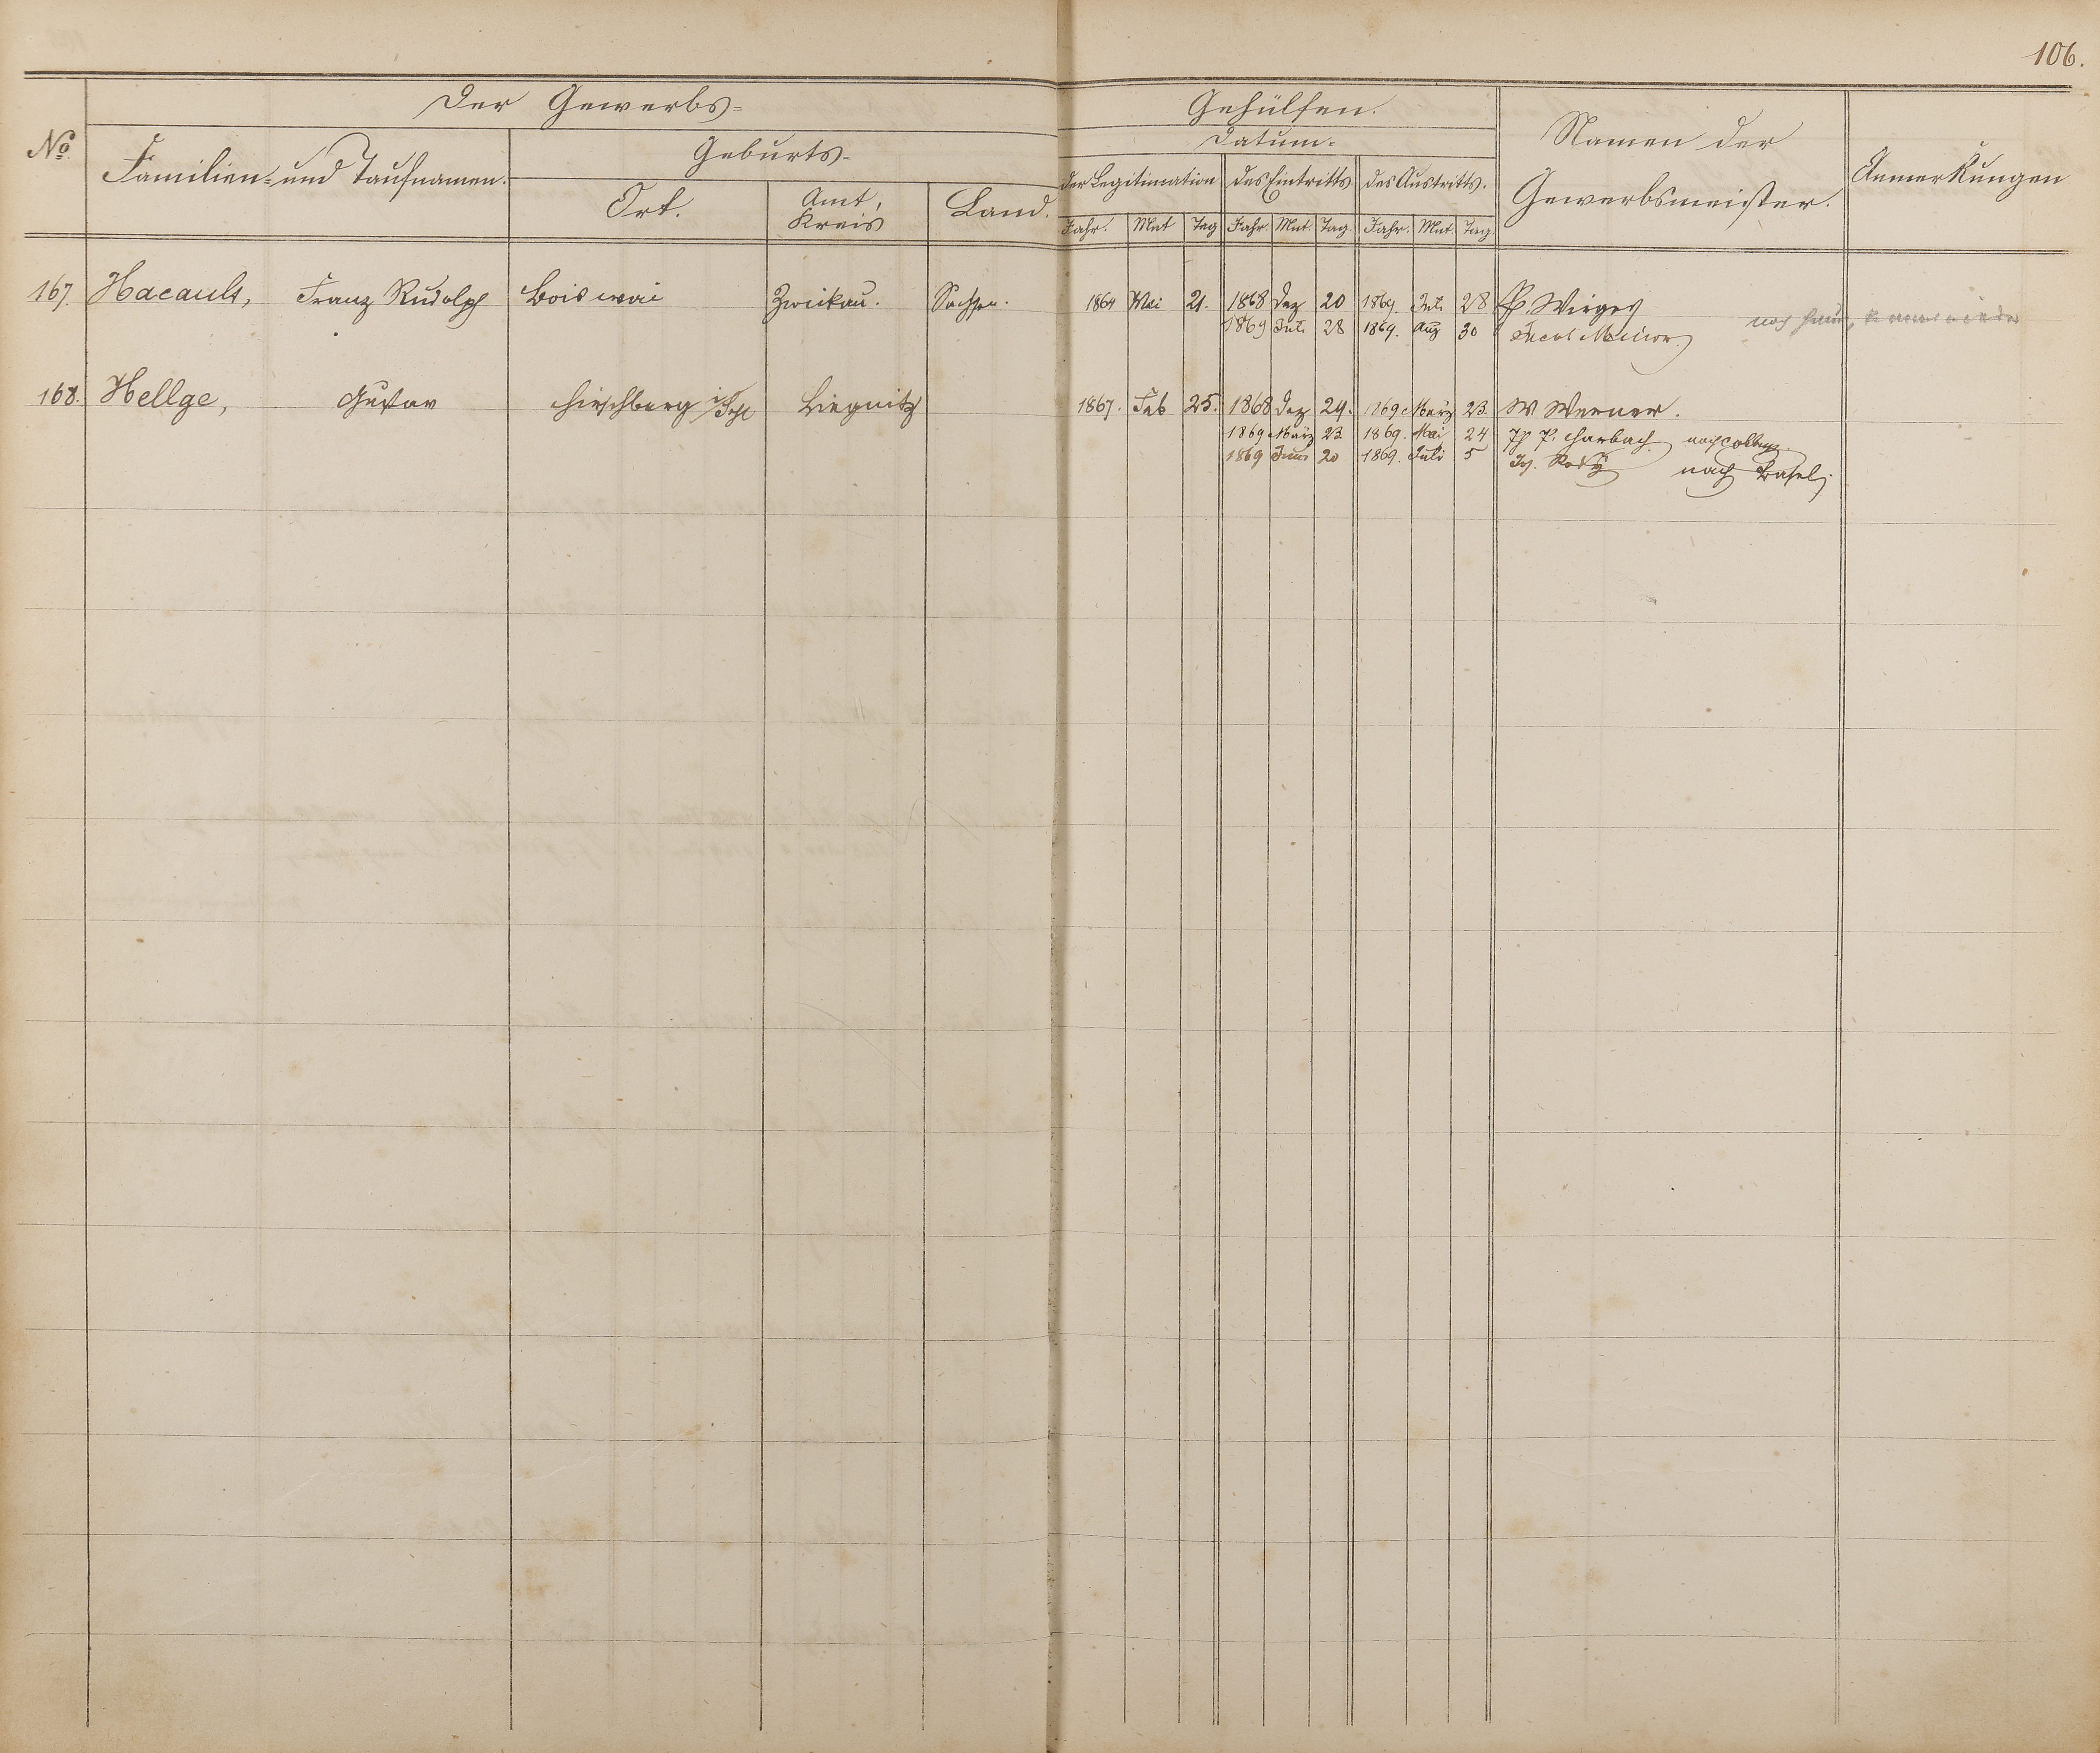 106.
Der Gewerbs=
Gehülfen.
No
Familien- und Taufnamen.
Geburts-
Ort.
Amt,
Kreis
Land.
Datum.
der Legitimation
des Eintritts
des Austritts.
Jahr. Mnt Tag Jahr. Mnt. Tag. Jahr. Mnt. Tag.
Namen der
Gewerbsmeister.
Anmerkungen
167. Hacault, Franz Rudolph Zwickau. Sachsen. 1864 Mai 21. 1868 Dez 20 1869. Juli 28 Wirges
1869 Juli 28 1869. Aug 30
168. Hellge, Gustav Hirschberg i/Schl Liegnitz 1867. Feb 25. 1868 Dez 24. 1869 März 23. W Werner.
1869 März 23 1869. Mai 24
1869 Juni 20 1869. Juli 5 nach Basel.